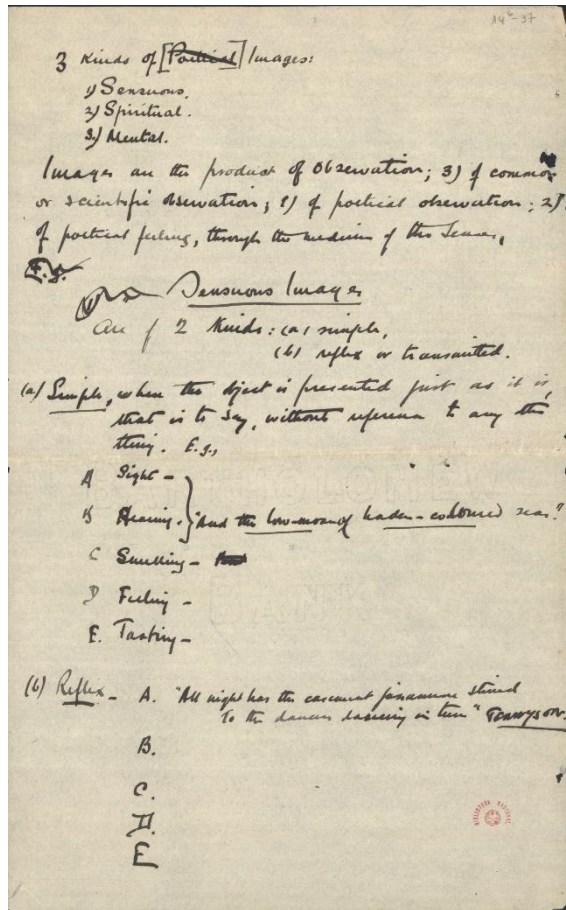 14⁶-37
3 Kinds of [Poetical] Images:
1) Sensuous.
2) Spiritual.
3.) Mental.
Images are the product of observation; 3) of common
or scientific observation; 1) of poetical observation; 2)
of poetical feeling, through the medium of the senses.
E.g.
Sensuous Images
Are of 2 Kinds: (a) simple,
(b) reflex or transmitted.
(a) Simple, when the object is presented just as it is,
that is to say, without reference to any other
thing. E.g.,
A Sight -
B Hearing. "And the low-moan of leaden-coloured seas."
C Smelling -
D Feeling -
E. Tasting -
(b) Reflex - A. "All night has the casement jessamine stirred
To the dancers dancing in tune" Tennyson.
B.
C.
D.
E
BIBLIOTECA NACIONAL